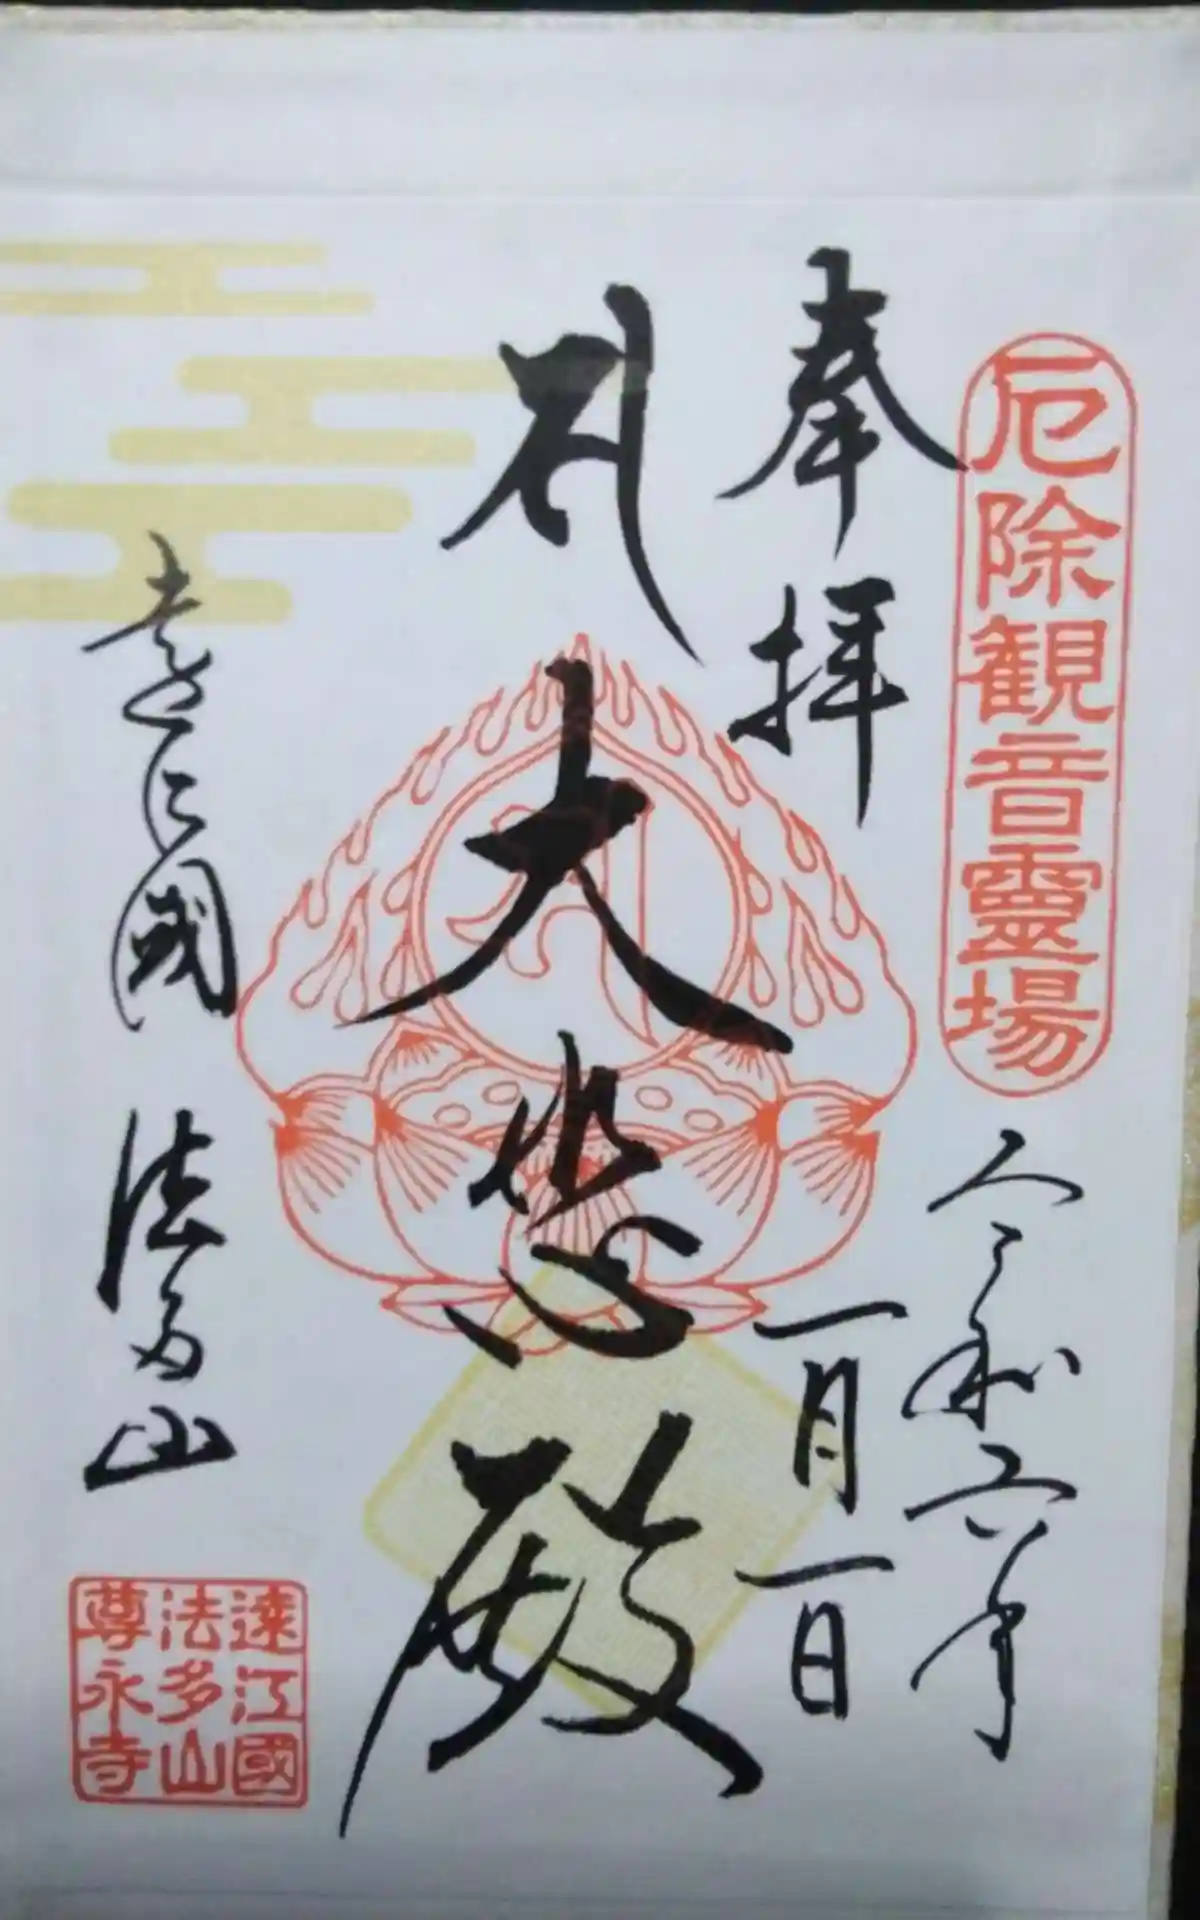 厄除観音霊場
奉拝
令和六年
一月一日
大悲殿
遠江國 法多山
遠江國
法多山
尊永寺